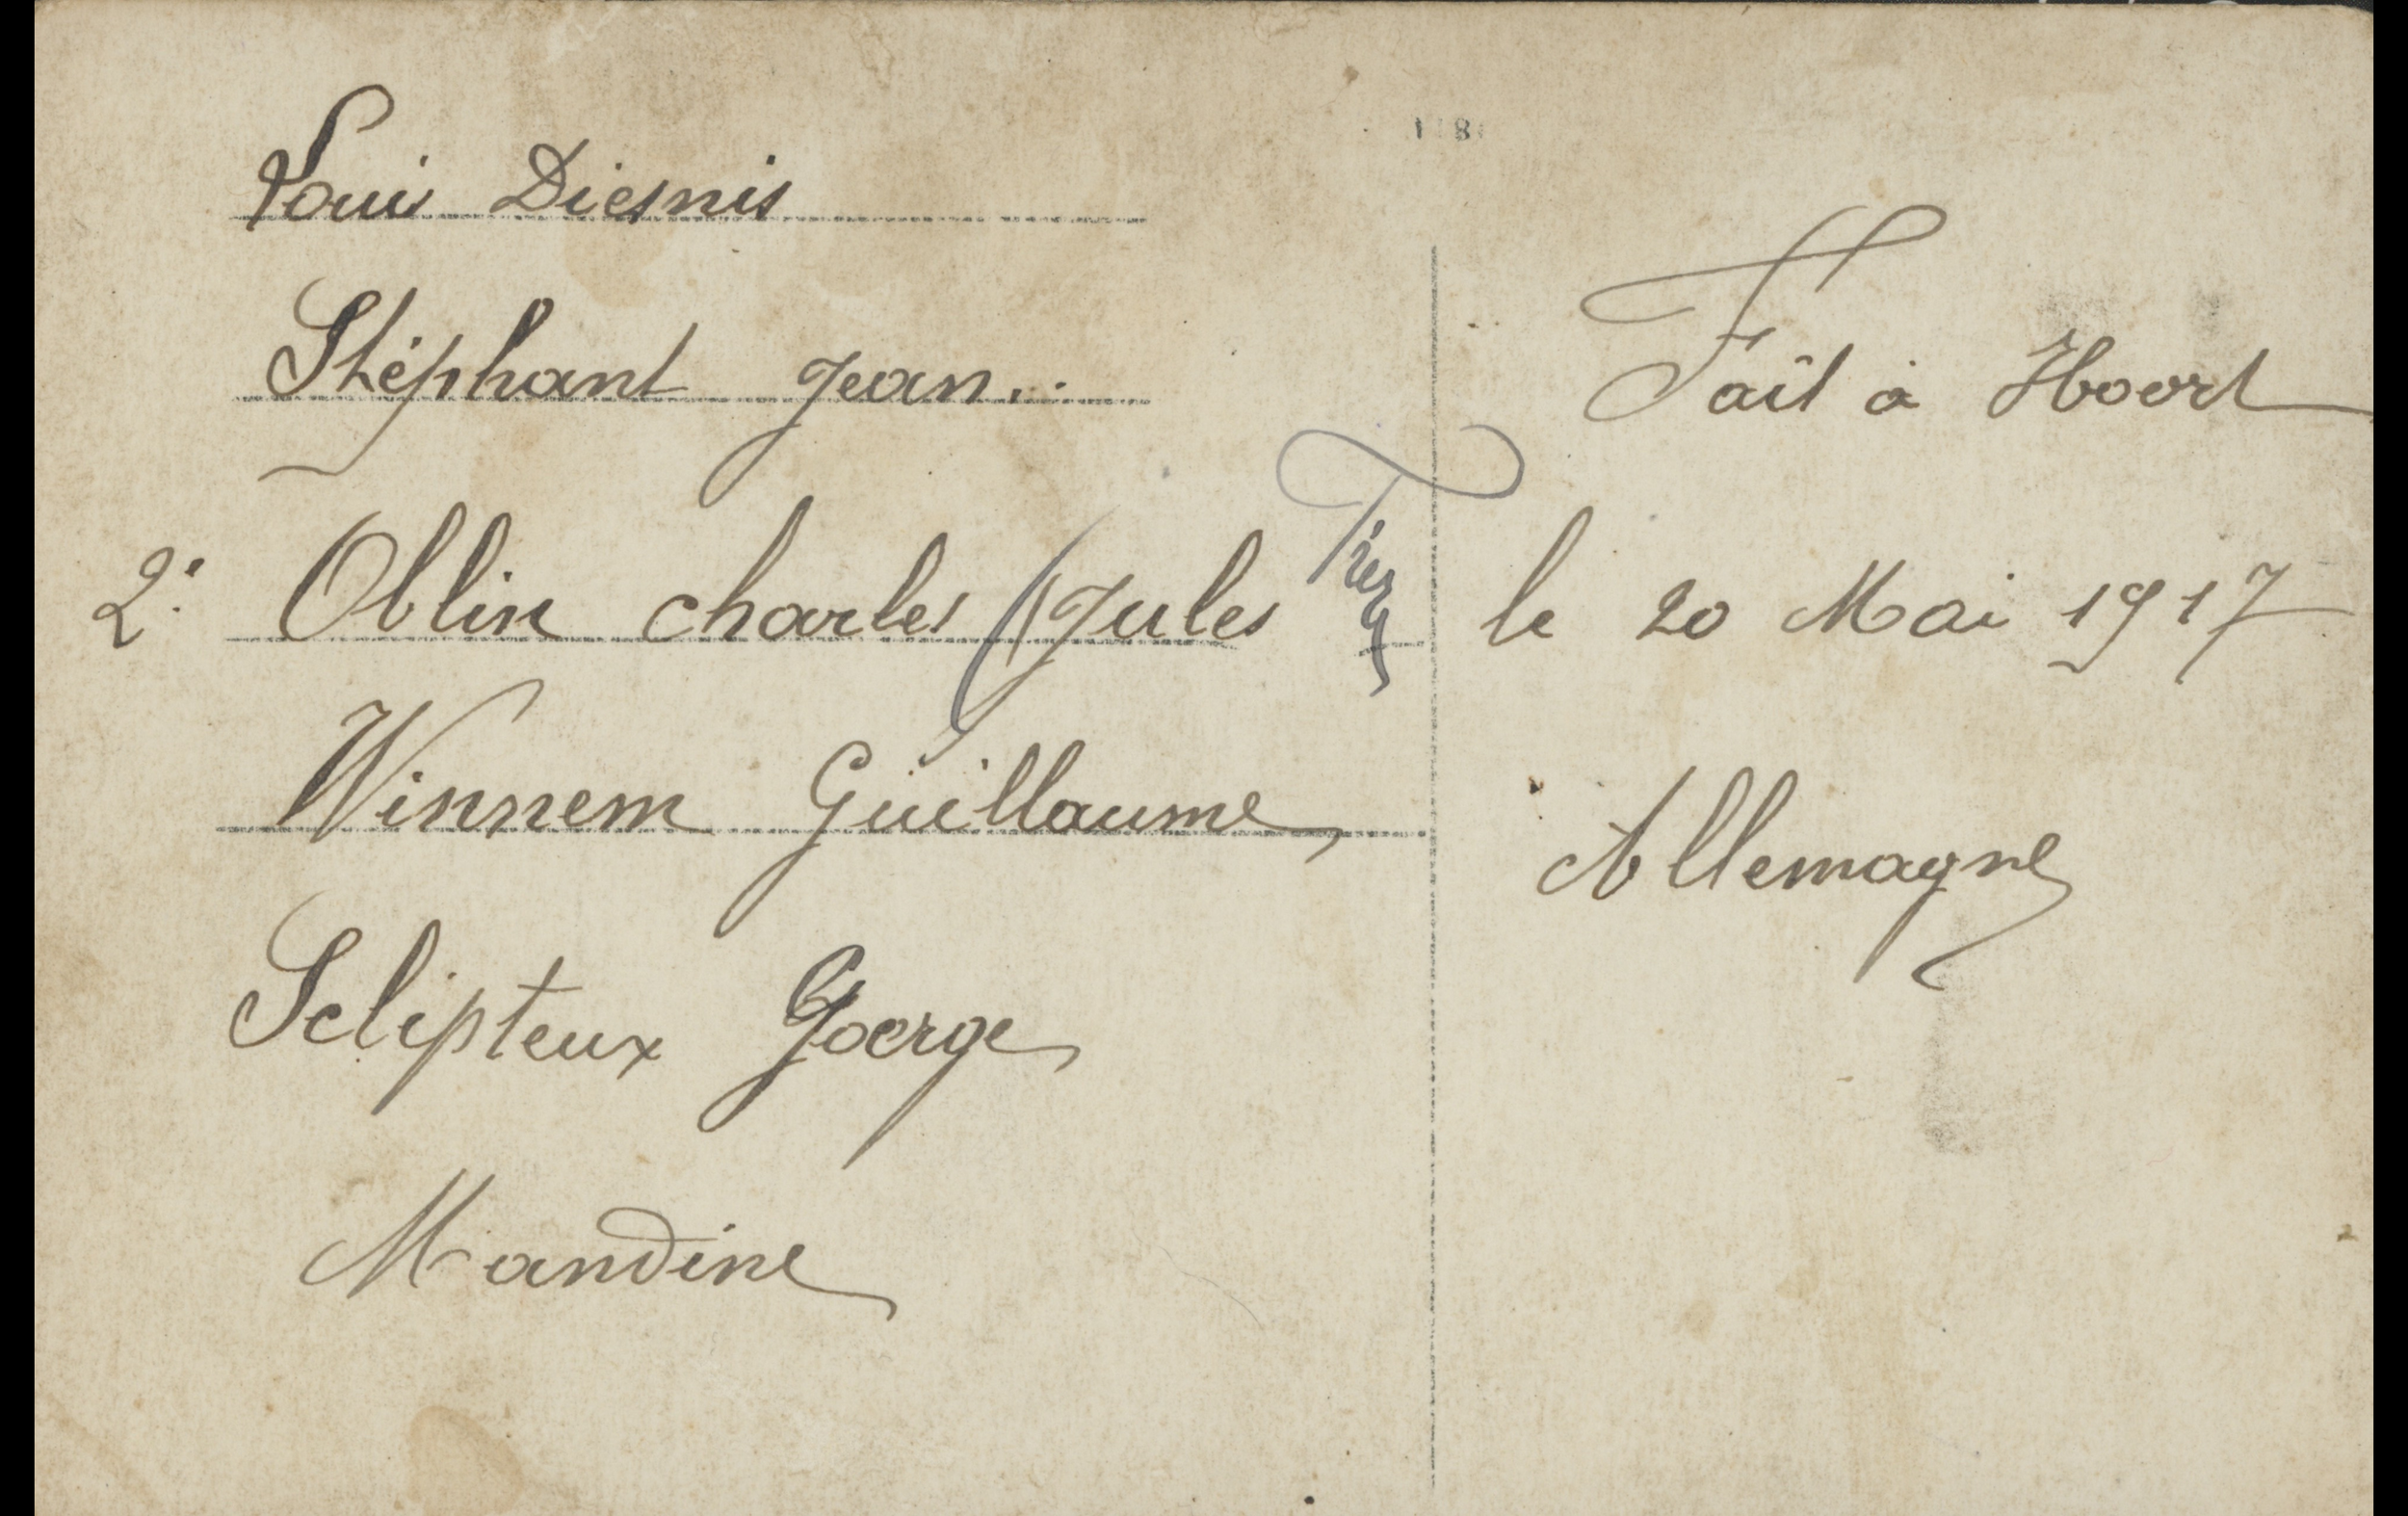 Louis Diesnis
Stéphant Jean.
2: Oblin charles (Jules
Winnem Guillaume
Sclipteux Goerge
Mandine
Fait à Hoort
le 20 Mai 1917
Allemagne